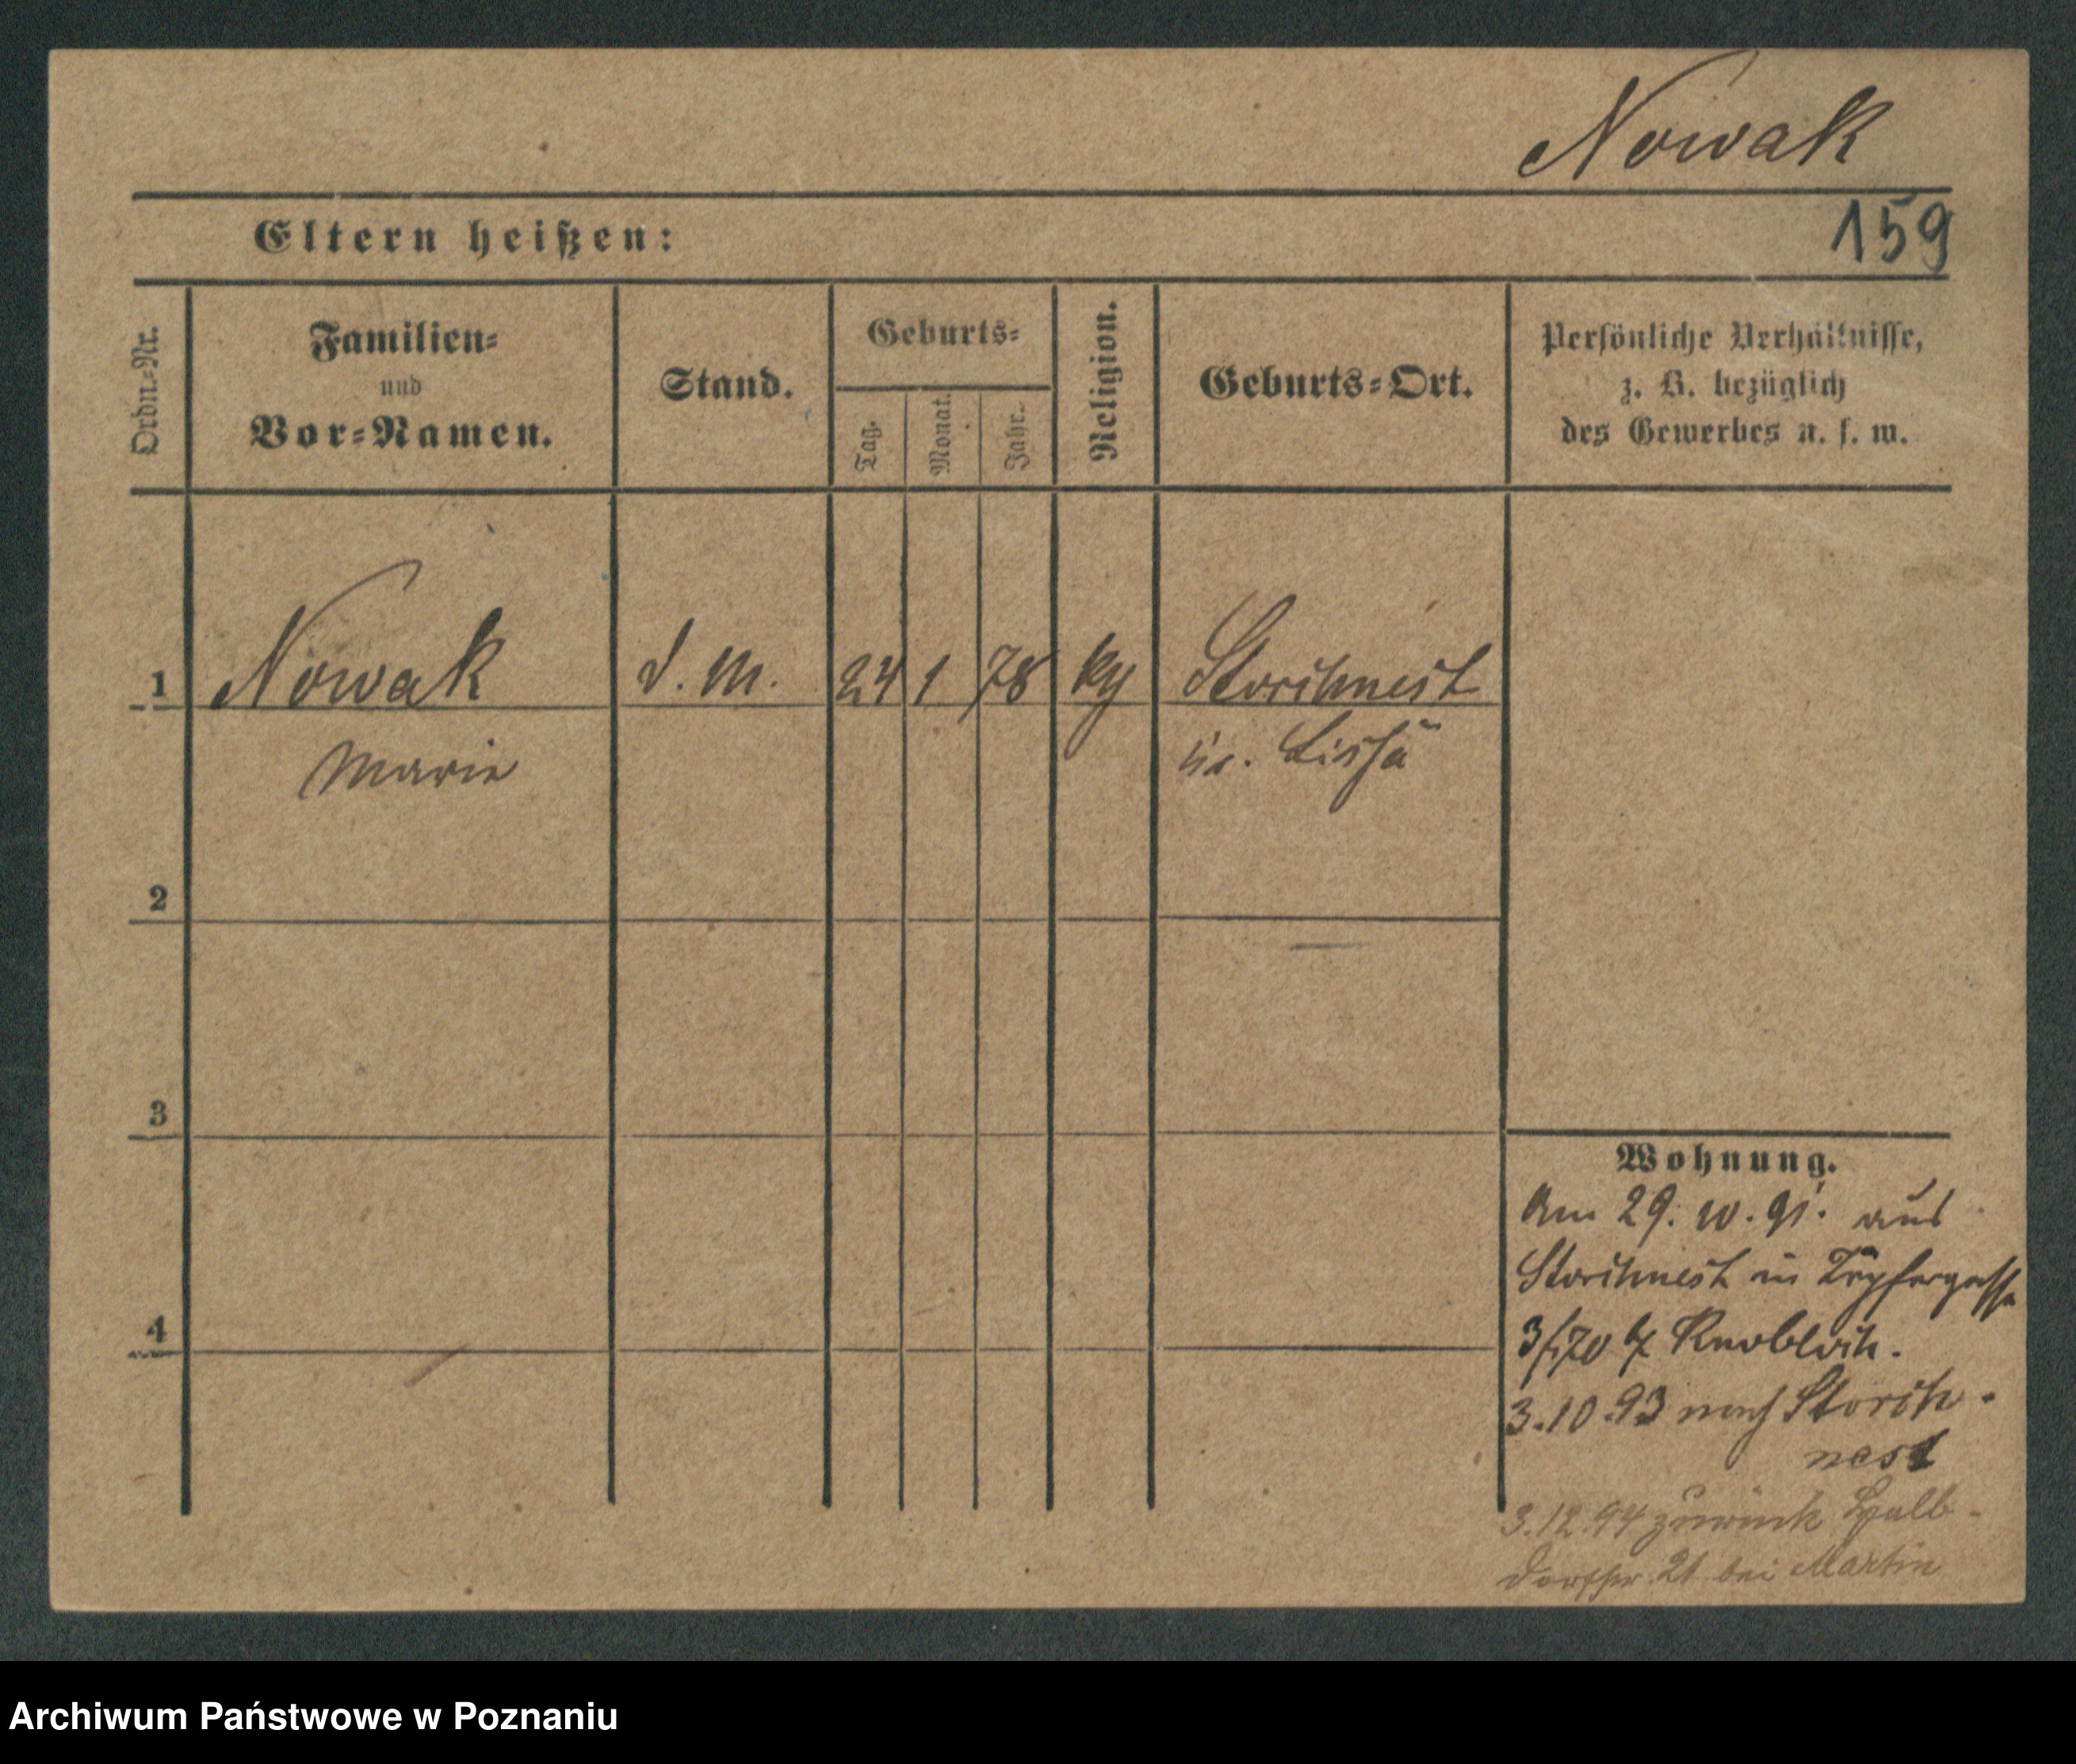 Nowak
Eltern heißen:
159
Ordn.-Nr.
Familien-
und
Vor-Namen.
Stand.
Geburts-
Tag.
Monat.
Jahr.
Religion.
Geburts-Ort.
Persönliche Verhältnisse,
z. B. bezüglich
des Gewerbes u. s. w.
1 Nowak d. M. 24 1 78 kg Storchnest
Marie Lissa
2
3
4
Wohnung.
Am 29. 10. 91. aus
Storchnest in Töpfergasse
3/170 Knobloch.
3.10.93 nach Storch-
nest
3.12.94 zurück Halb-
dorfstr 21 bei Martin
Archiwum Państwowe w Poznaniu